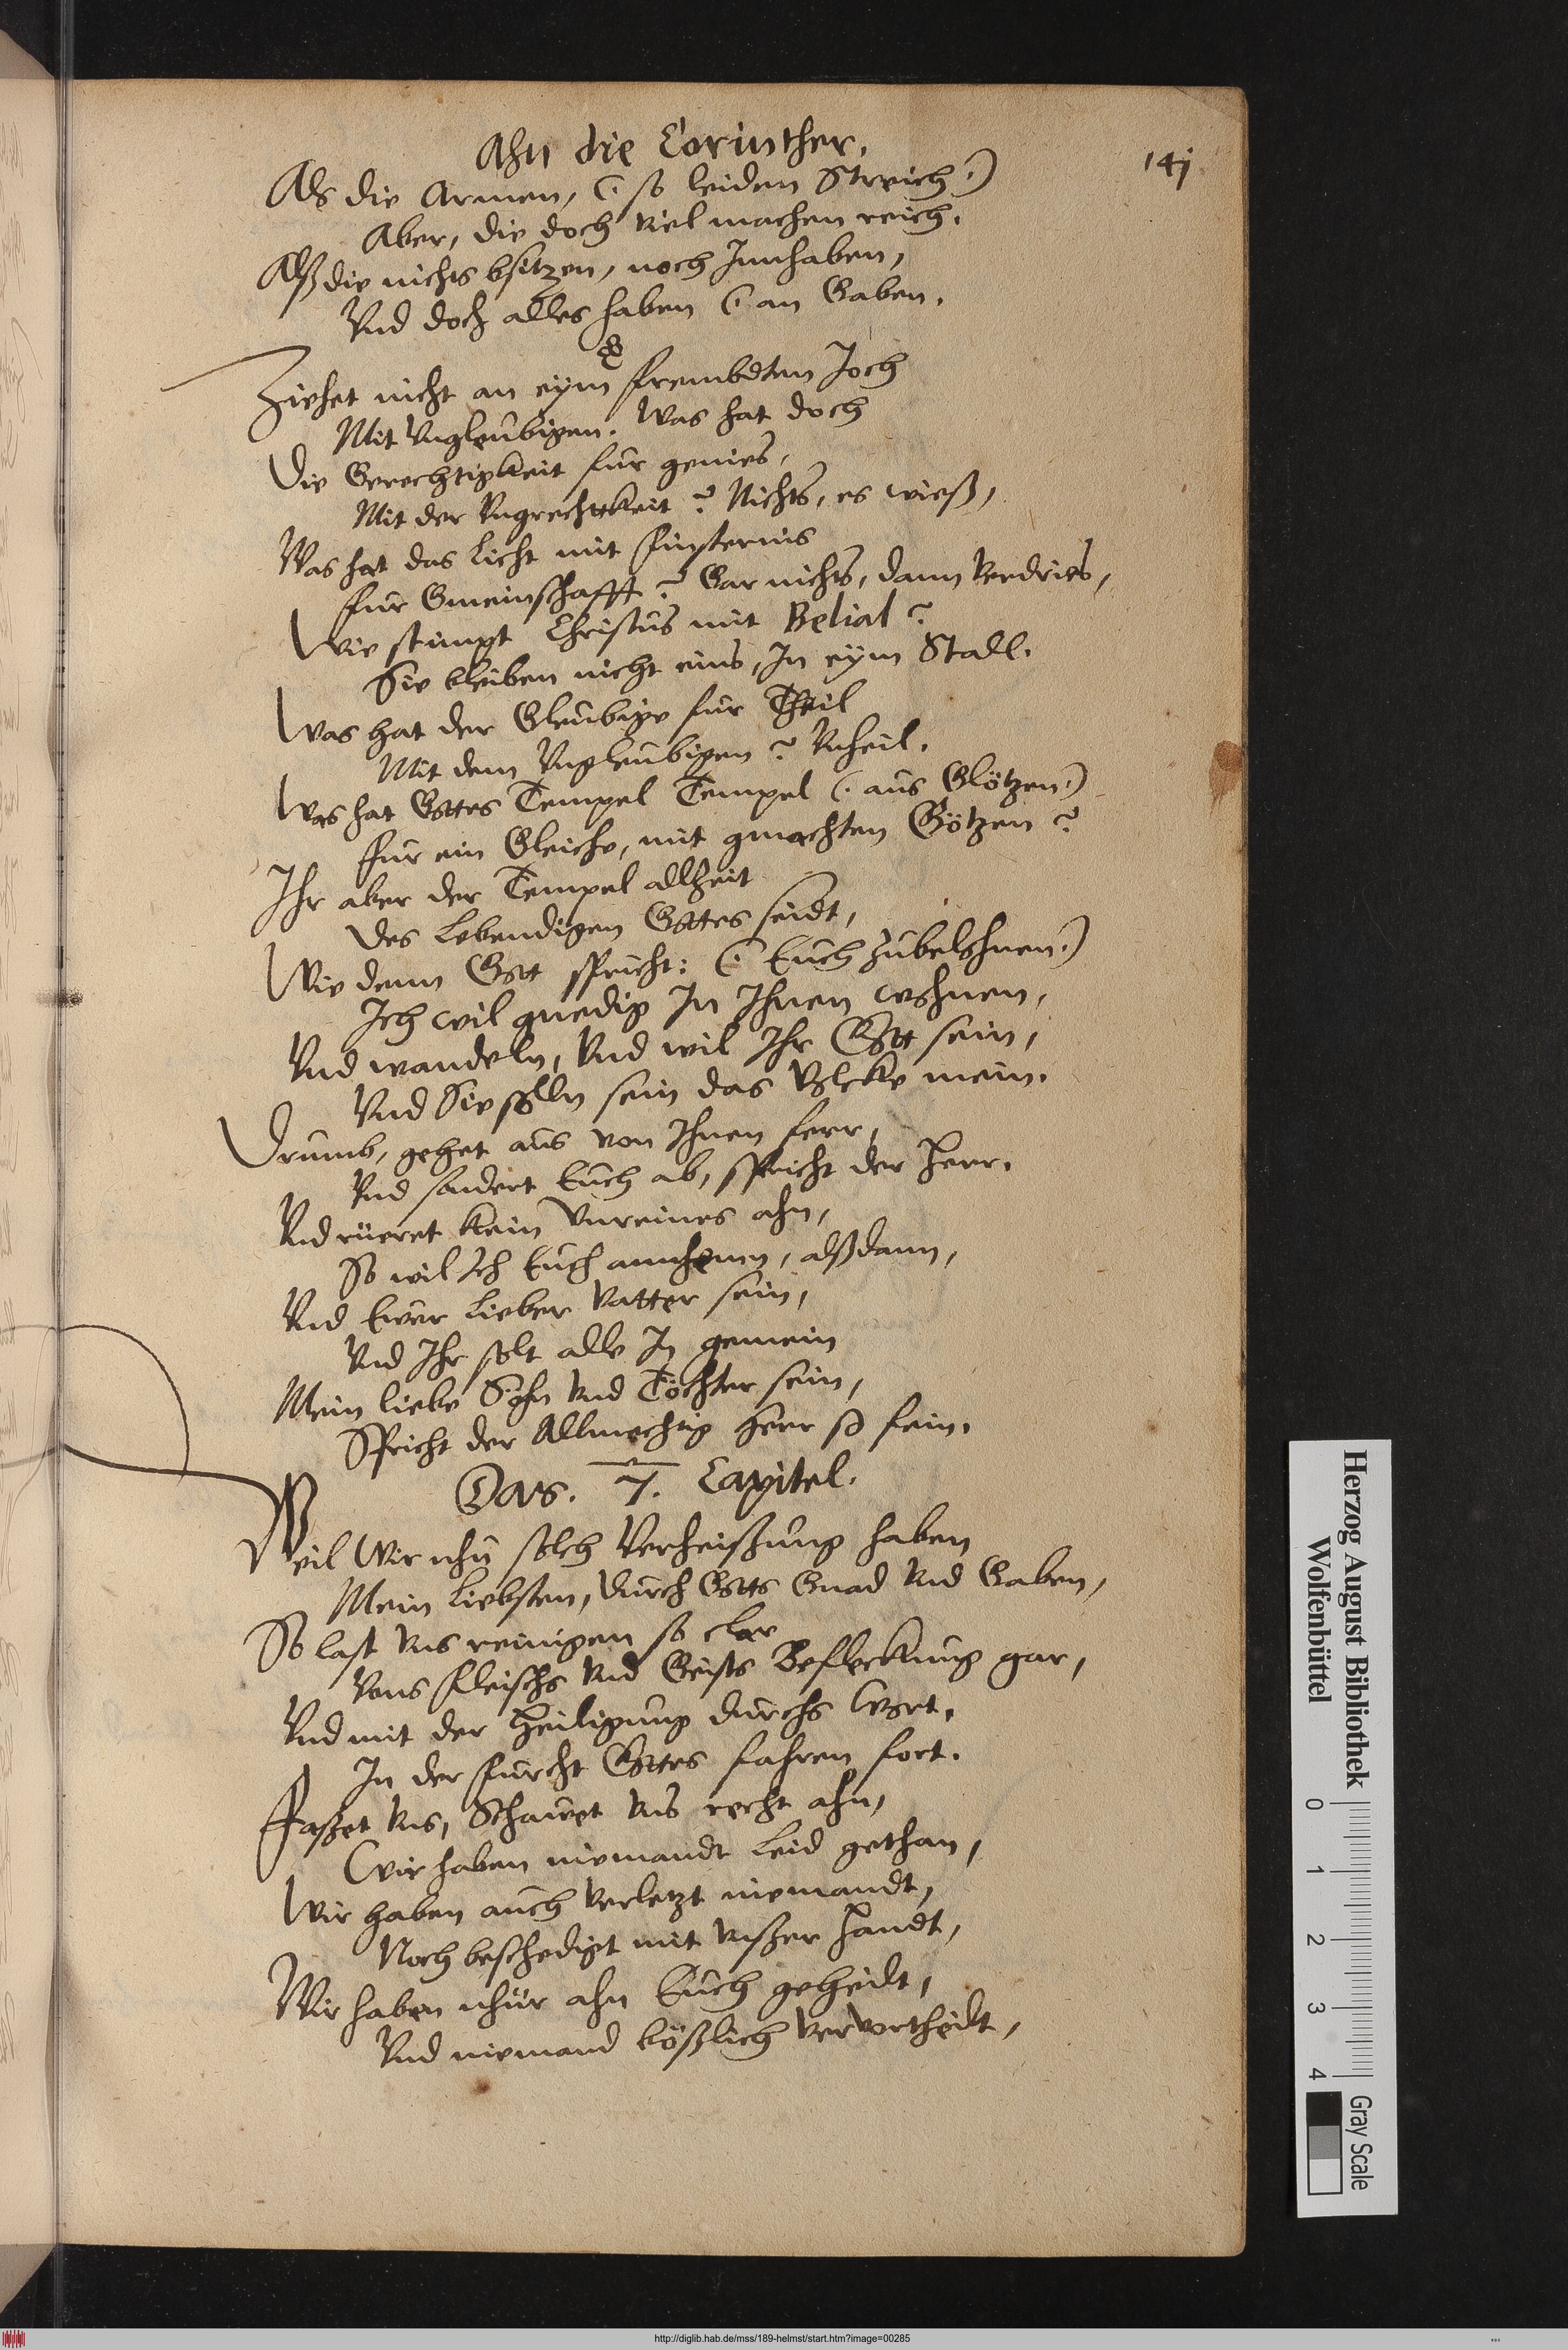 Ahn die Corinther.
141
Als die Armen, (: so leiden Streich :)
Aber, die doch viel machen reich.
Alß die nichts bsitzen, noch Innhaben,
Vnd doch alles haben (: an Gaben.
Ziehet nicht an eÿm frembdten Joch
Mit Vngleubigen. Was hat doch
Die Gerechtigkeit fur genies,
Mit der Vngrechtkeit? Nichts, es wieß,
Was hat das Licht mit Finsternis
Fur Gmeinschafft? Gar nichts, dann Verdries,
Wie stimpt Christus mit Belial?
Sie bleiben nicht eins, In eÿm Stall.
Was hat der Gleubige fur Theil
Mit dem Vngleubigen? Vnheil.
Was hat Gottes Tempel Tempel (: aus Glötzen :)
Fur ein Gleiche, mit gmachten Götzen?
Ihr aber der Tempel allzeit
Des Lebendigen Gottes seidt,
Wie denn Gott spricht: (: Euch zubelohnen :)
Ich wil gnedig In Ihnen wohnen,
Vnd wandeln, Vnd wil Ihr Gott sein,
Vnd Sie solln sein das Volcke mein.
Drumb, gehet aus von Ihnen ferr,
Vnd sondert Euch ab, spricht der Herr.
Vnd rüeret kein Vnreines ahn,
So wil Ich Euch annhemn, alßdann,
Vnd Ewer lieber Vatter sein,
Vnd Ihr solt alle In gemein
Mein liebe Söhn Vnd Töchter sein,
Spricht der Allmechtig Herr so fein.
Das. 7. Capitel.
Weil Wir nhu solch Verheißung haben
Mein Liebsten, durch Gotts Gnad Vnd Gaben,
So last Vns reinigen so clar
Vons Fleischs Vnd Geists Befleckung gar,
Vnd mit der Heiligung durchs Wort,
In der Furcht Gottes fahren fort.
Faßet Vns, Schawet Vns recht ahn,
Wir haben niemandt Leid gethan,
Wir haben auch Verletzt niemandt,
Noch beschedigt mit Vnßer Handt,
Wir haben nhur ahn Euch geheilt,
Vnd niemand bößlich Vervortheilt,
Herzog August Bibliothek
Wolfenbüttel
0 1 2 3 4
Gray Scale
http://diglib.hab.de/mss/189-helmst/start.htm?image=00285